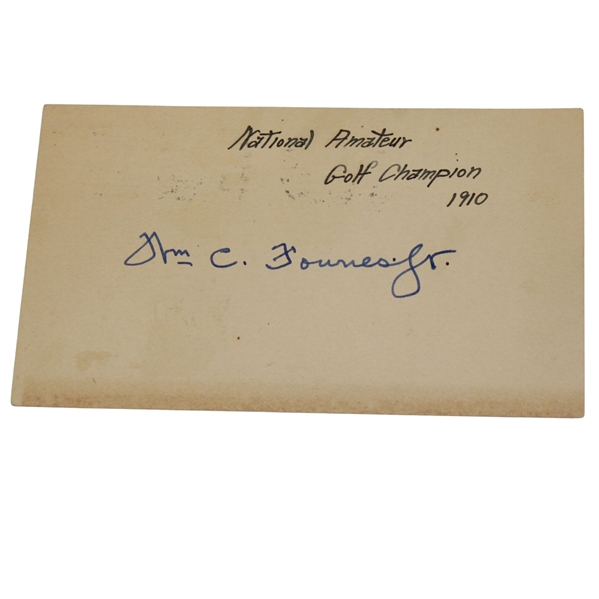 National Amateur
Golf Champion
1910
Wm C. Fownes Jr.